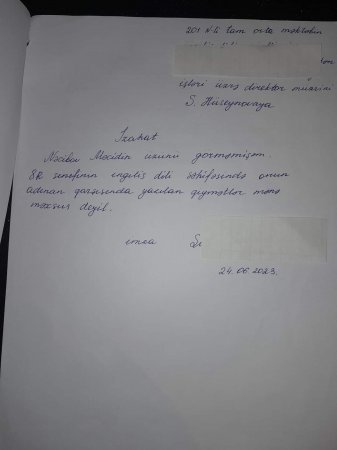 201 N-li tam orta məktəbin
işləri üzrə direktor müavini
S. Hüseynovaya
İzahat
Nəcibov Məcidin üzünü görməmişəm.
8 sinifinin ingilis dili səhifəsində onun
adının qarşısında yazılan qiymətlər mənə
məxsus deyil.
imza
24.06.2023.